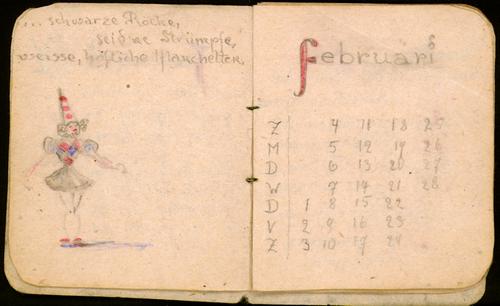 ... schwarze Röcke,
seidne Strümpfe,
weisse, höfliche Manchetten,
Februari
Z 4 11 18 25
M 5 12 19 26
D 6 13 20 27
W 7 14 21 28
D 1 8 15 22
V 2 9 16 23
Z 3 10 17 24